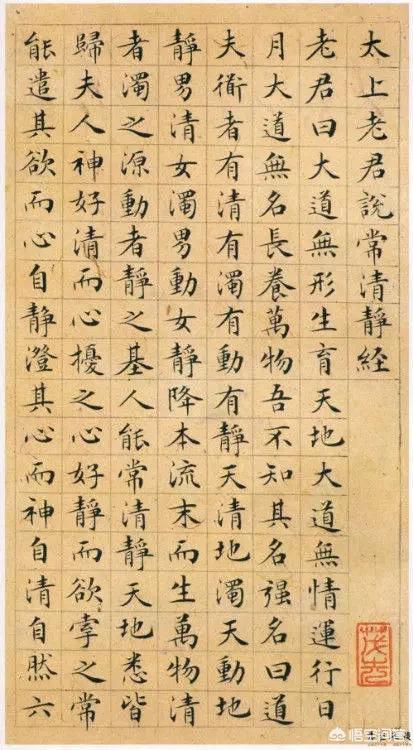 太上老君說常清靜経
老君曰大道無形生育天地大道無情運行日
月大道無名長養萬物吾不知其名强名曰道
夫衜者有清有濁有動有靜天清地濁天動地
靜男清女濁男動女靜降本流末而生萬物清
者濁之源動者靜之基人能常清靜天地悉皆
歸夫人神好清而心擾之心好靜而欲牽之常
能遣其欲而心自静澄其心而神自清自然六
悟空问答